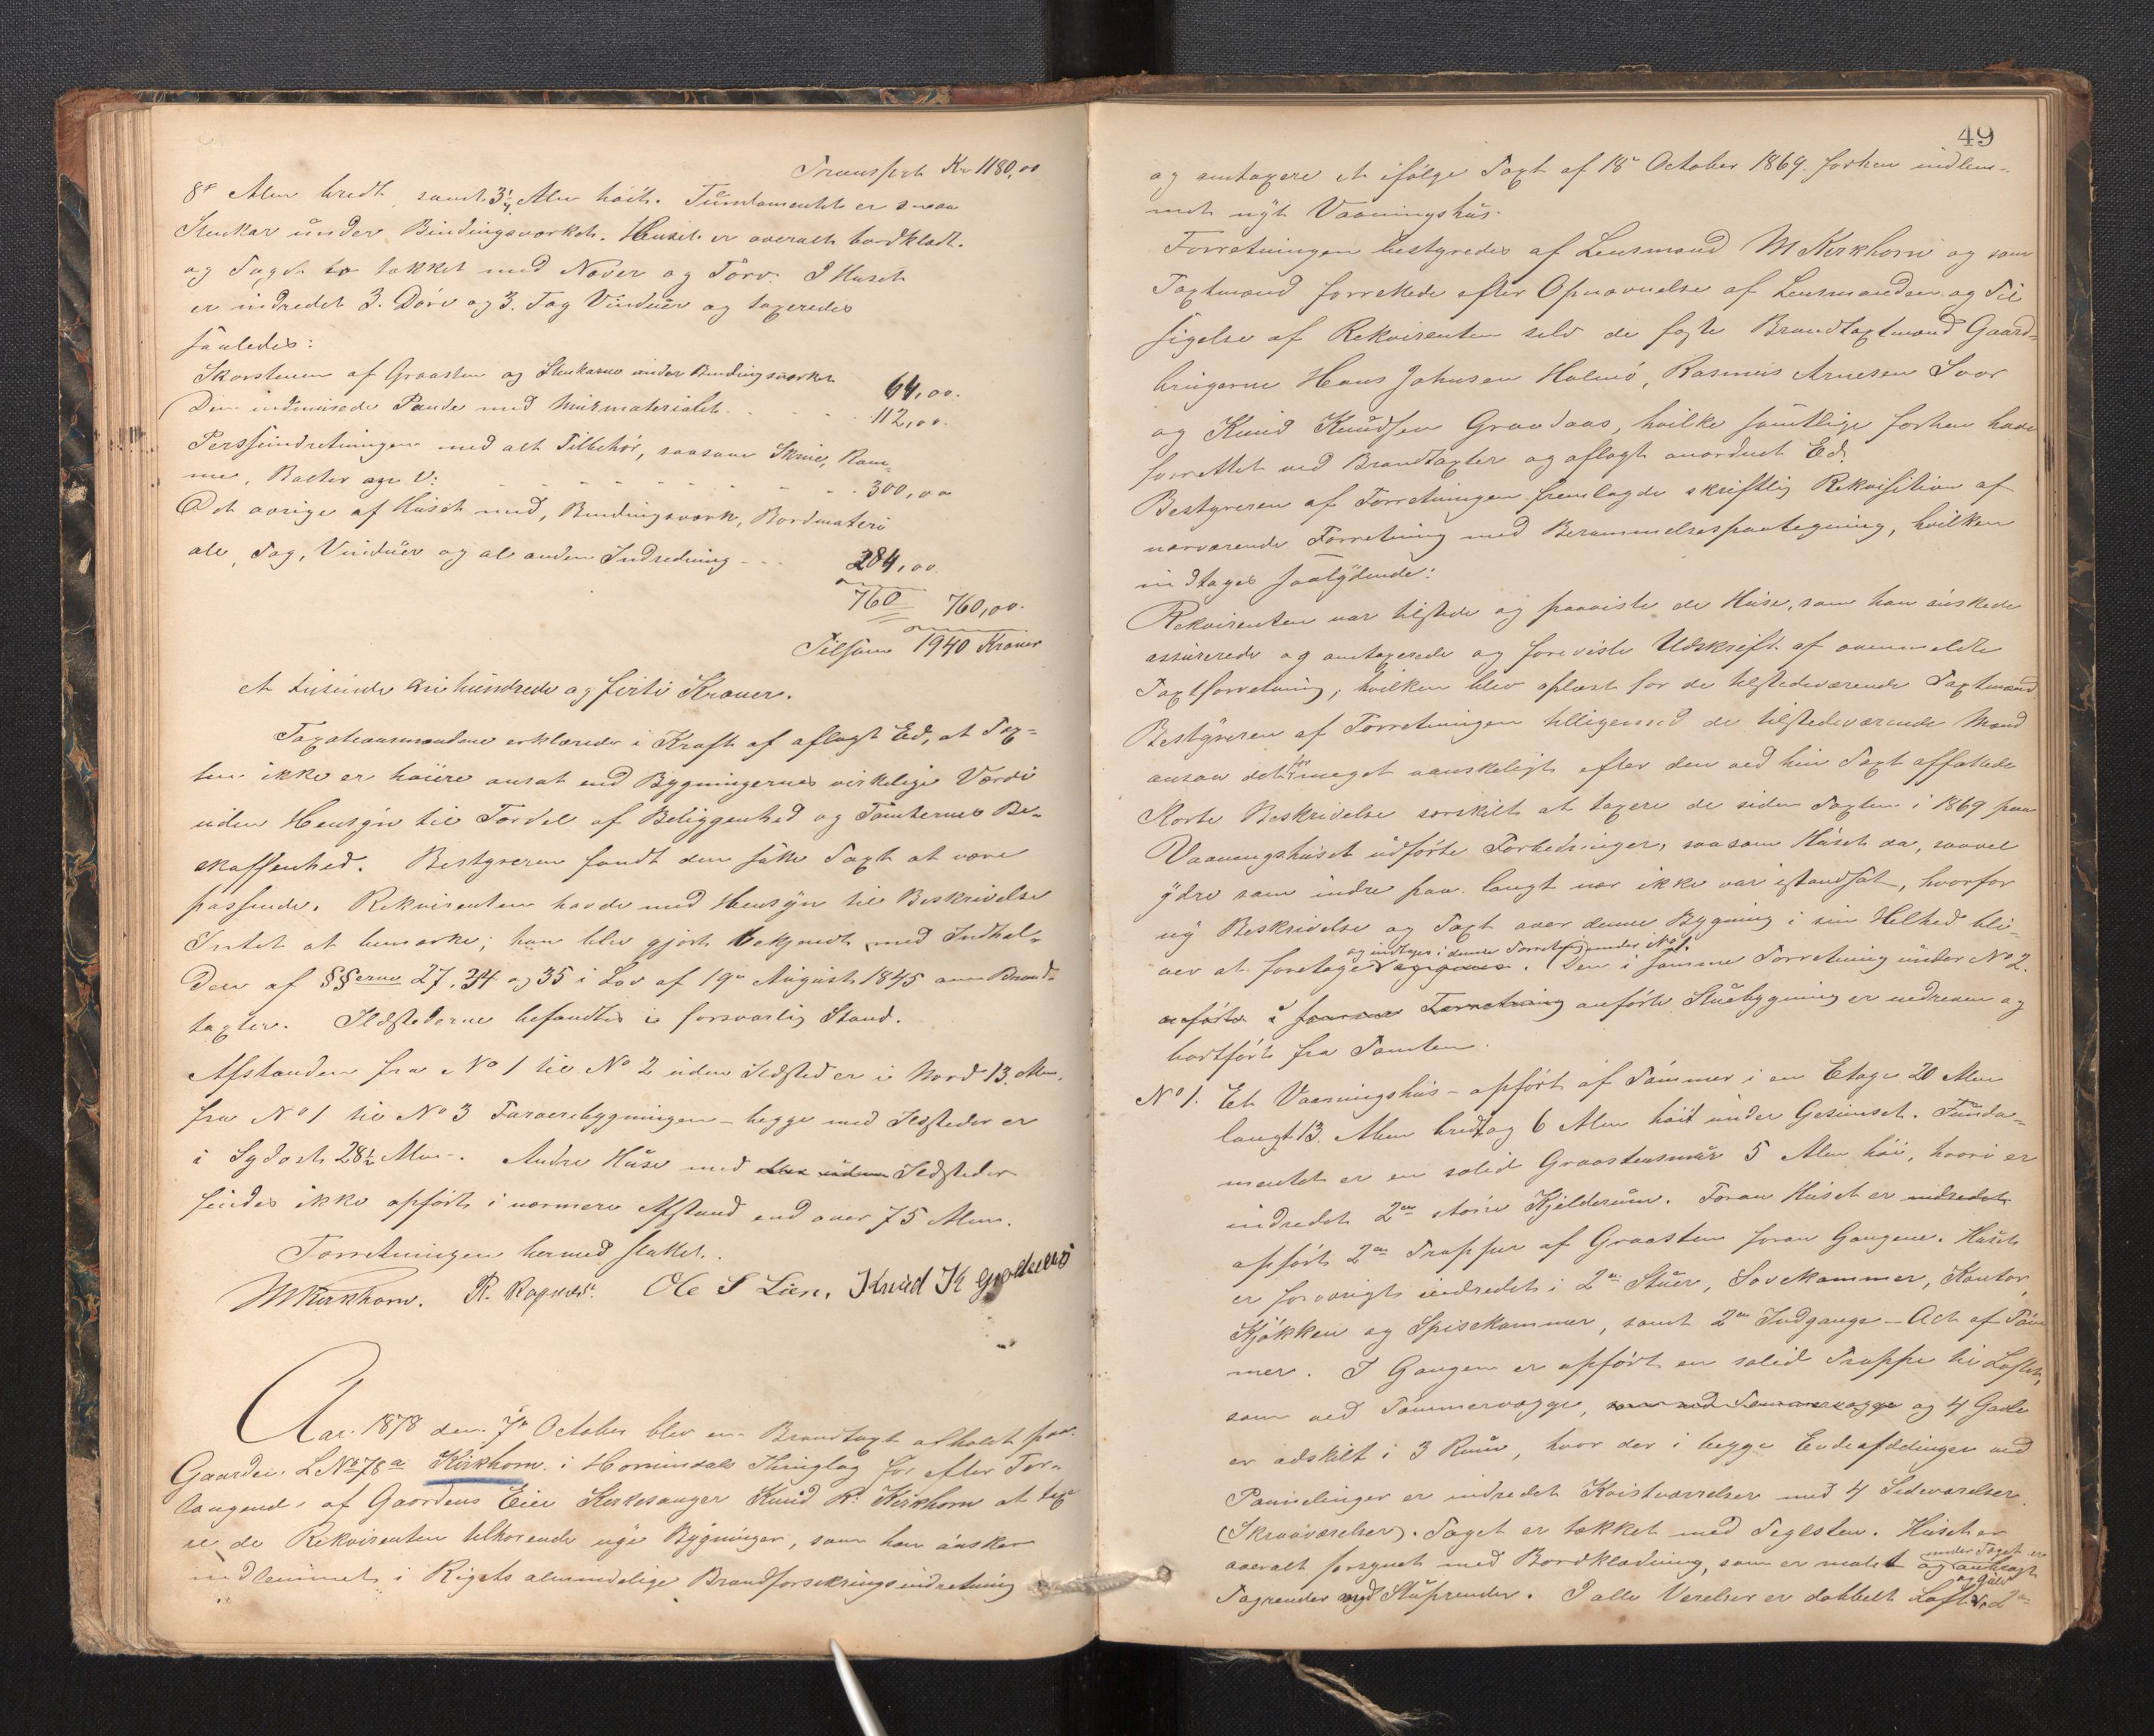 Transport Kr 1180,00
8t Alen bredt, samt 3¼ Alen høit. Fundamentet er smaa
Stenkar under Bindingsværket. Huset er overalt bordklædt.
og Taget tækket med Næver og Tørv. I Huset
er indredet 3. Døre og 3. Fag Vinduer og taxeredes
saaledes:
Skorstenen af Graasten og Stenkarne under Bindingsværket 64,00.
Den indmurede Pande med Murmaterialet 112,00.
Perseindretningen med alt Tilbehør, saasom Skrue, Ram-
me, Bøtter og v: 300,00
Det øvrige af Huset med, Bindingsværk, Bordmateri
ale, Tag, Vinduer og al anden Indredning 284,00
760 760,00.
Tilsam 1940 Kroner
et tusinde ni hundrede og førti Kroner.
Taxationsmændene erklærede i Kraft af aflagt Ed, at Tax-
ten ikke er høiere ansat end Bygningernes virkelige Værdi
uden Hensyn til Fordel af Beliggenhed og Tomternes Be-
skaffenhed. Bestyreren fandt den satte Taxt at være
passende. Rekvirenten havde med Hensyn til Beskrivelse
Intet at bemærke; han blev gjort bekjendt med Indhol-
det af §§erne 27, 34 og 35 i Lov af 19de August 1845 om Brand-
taxter. Ildstederne befandtes i forsvarlig Stand.
Afstanden fra No 1 til No 2 uden Ildsted er i Nord 13. Alen.
fra No 1 til No 3 Farveribygningen – begge med Ildsteder er
i Sydost 28½ Alen. Andre Huse med eller uden Ildsteder
findes ikke opført i nærmere Afstand end over 75 Alen.
Forretningen hermed sluttet.
MKirkhorn. R. Ragnæs. Ole S Lien, Knud K Grodaas
Aar 1878 den 7de October blev en Brandtaxt afholdt paa
Gaarden LNo 78a Kirkhorn i Hornindals Thinglag for efter For-
langend. af Gaardens Eier Kirkesanger Knud R. Kirkhorn at tax
re de Rekvirenten tilhørende nye Bygninger, som han ønsker
indlemmet i Rigets almindelige Brandforsikringsindretning
49
og omtaxere et ifølge Taxt af 18de October 1869 forhen indlem-
met nyt Vaaningshus.
Forretningen bestyredes af Lensmand M Kirkhorn og som
Taxtmænd forrettede efter Opnævnelse af Lensmanden og Til
sigelse af Rekvirenten selv de faste Brandtaxtmænd Gaard-
brugerne Hans Johnsen Holmø, Rasmus Arnesen Svor
og Knud Knudsen Graadaas, hvilke samtlige forhen have
forrettet ved Brandtaxter og aflagt anordnet Ed.
Bestyreren af Forretningen fremlagde skriftlig Rekvisition af
nærværende Forretning med Berammelsespaategning, hvilken
indtages saalydende:
Rekvirenten var tilstede og paaviste de Huse, som han ønskede
assurerede og omtaxerede og foreviste Udskrift af ovenmeldte
Taxtforretning, hvilken blev oplæst for de tilstedeværende Taxtmænd
Bestyreren af Forretningen tilligemed de tilstedeværende Mænd
ansaa det for meget vanskeligt efter den ved hin Taxt affattede
Korte Beskrivelse særskilt at taxere de siden Taxten i 1869 paa
Vaaningshuset udførte Forbedringer, saasom Huset da, saavel
ydre som indre paa langt nær ikke var istandsat, hvorfor
ny Beskrivelse og Taxt over denne Bygning i sin Helhed bli-
og indtages i denne Forretning under No 1.
ver at foretage. Den i samme Forretning under No 2.
anførte i samme Forretning anførte Stuebygning er nedreven og
bortført fra Tomten.
No 1. Et Vaaningshus – opført af Tømmer i en Etage 20 Alen
langt 13. Alen bredt og 6 Alen høit under Gesimset. Funda-
mentet er en solid Graastensmur 5 Alen høi, hvori er
indredet 2de større Kjelderrum. Foran Huset er indredet
opført 2de Trapper af Graasten foran Gangene. Huset
er forøvrigt indredet i 2de Stuer, Sovekammer, Kontor,
Kjøkken og Spisekammer, samt 2de Indgange – Alt af Tøm
mer. I Gangen er opført en solid Trappe til Loftet,
som ved Tømmervægge, som ved Tømmervægge og 4 Gavle
er adskilt i 3 Rum, hvor der i begge Endeafdelinger ved
Panelinger er indredet Kvistværrelser med 4 Sideværelser.
(Skraaværelser). Taget er tækket med Teglsten. Huset er
under Taget er
overalt forsynet med Bordklædning, som er malet og anbragt
og Gulv
Tagrender med Stuprender. I alle Værelser er dobbelt Loft